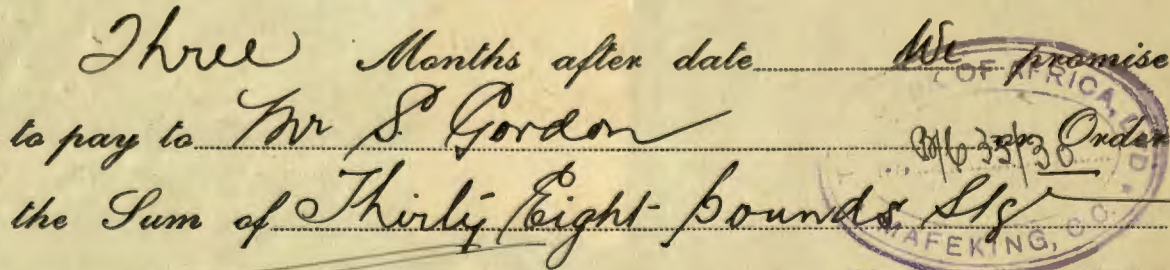 Three Months after date We promise
to pay to Mr S. Gordon or Order
the Sum of Thirty Eight pounds Stg
OF AFRICA,
MAFEKING, C.C.